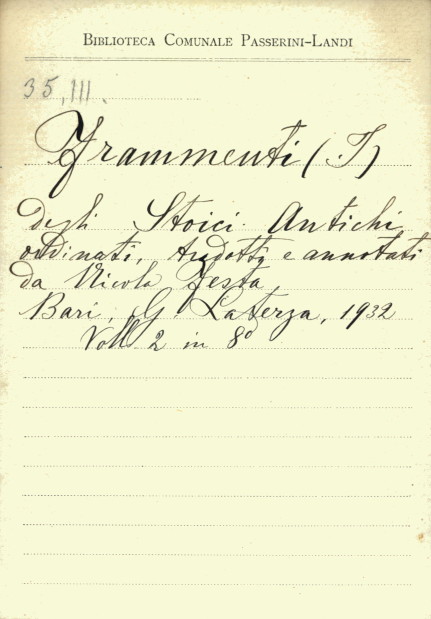 BIBLIOTECA COMUNALE PASSERINI-LANDI
35, III.
Frammenti (I)
degli Stoici Antichi,
ordinati, tradotti e annotati
da Nicola Festa
Bari, G. Laterza, 1932
Voll. 2 in 8º